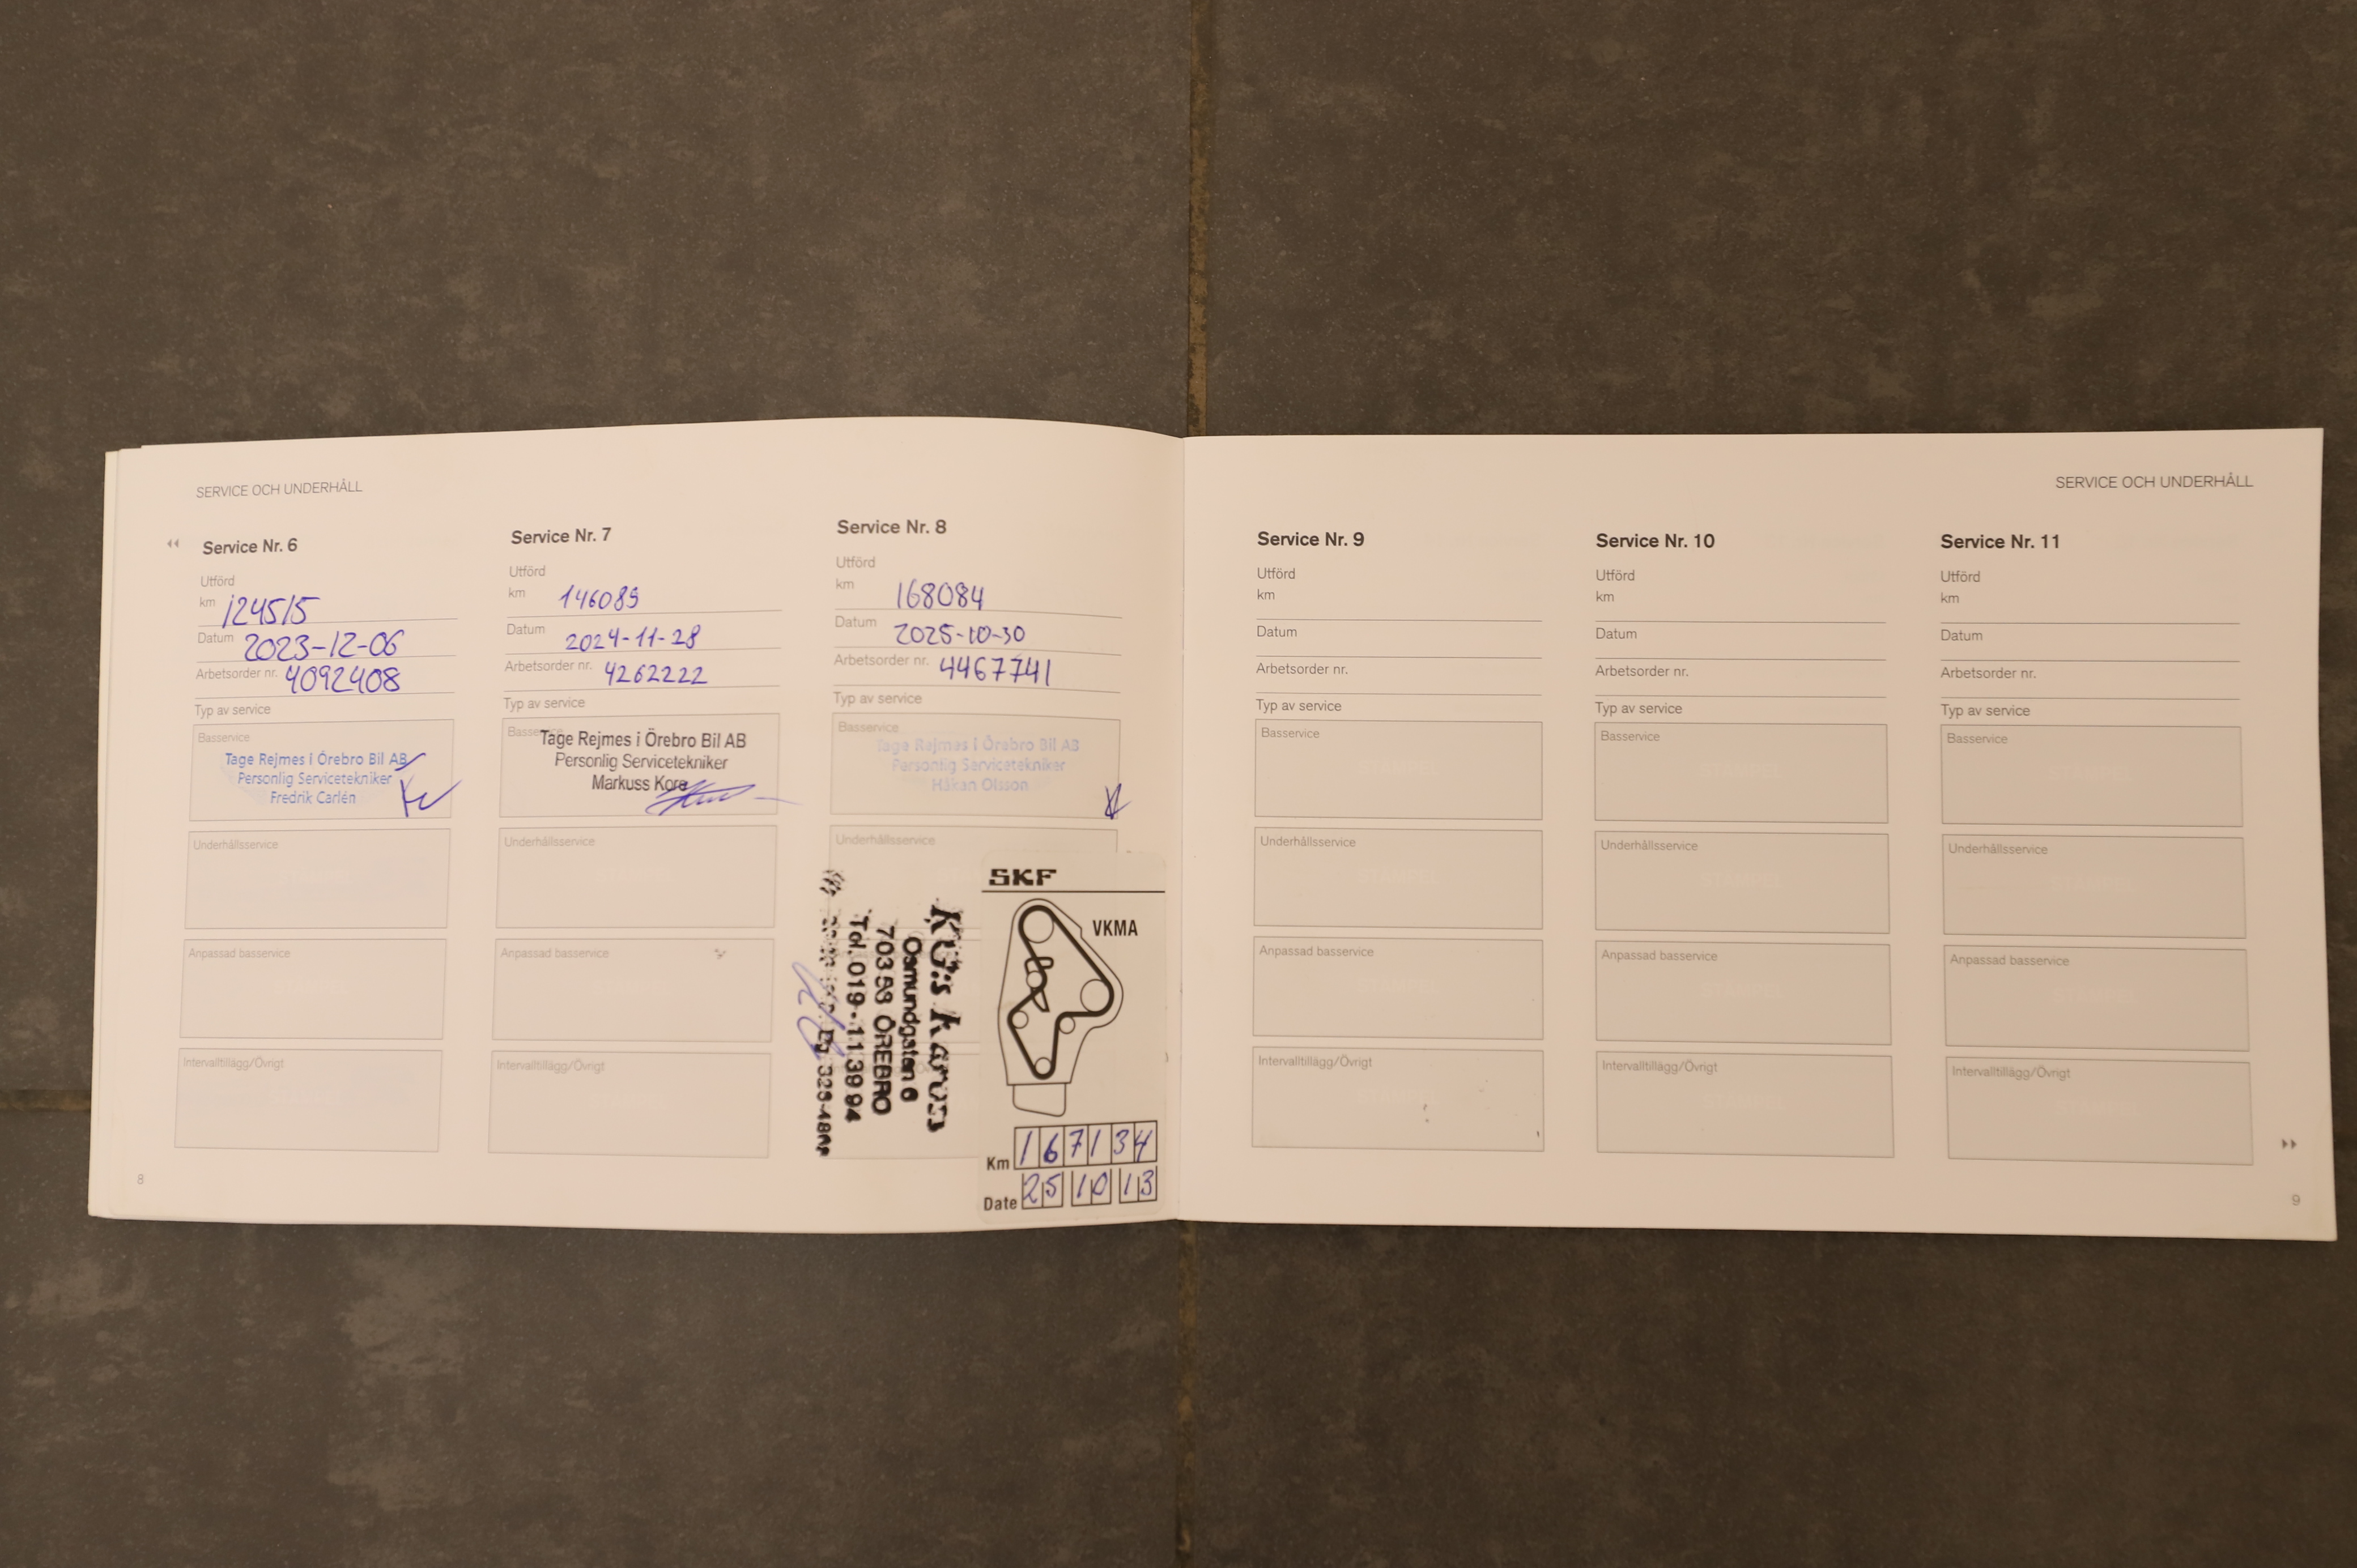 SERVICE OCH UNDERHÅLL
Service Nr. 6
Utförd
km 124515
Datum 2023-12-06
Arbetsorder nr. 4092408
Typ av service
Basservice
Tage Rejmes i Örebro Bil AB
Personlig Servicetekniker
Fredrik Carlén
Underhållsservice
Anpassad basservice
Intervalltillägg/Övrigt
8
Service Nr. 7
Utförd
km 146089
Datum 2024-11-28
Arbetsorder nr. 4262222
Typ av service
Basservice
Tage Rejmes i Örebro Bil AB
Personlig Servicetekniker
Markuss Kore
Underhållsservice
Anpassad basservice
Intervalltillägg/Övrigt
Service Nr. 8
Utförd
km 168084
Datum 2025-10-30
Arbetsorder nr. 4467741
Typ av service
Basservice
Tage Rejmes i Örebro Bil AB
Personlig Servicetekniker
Håkan Olsson
Underhållsservice
Osmundgatan 6
703 53 ÖREBRO
Tel. 019-11 39 94
SKF
VKMA
Km 167134
Date 25 10 13
SERVICE OCH UNDERHÅLL
Service Nr. 9
Utförd
km
Datum
Arbetsorder nr.
Typ av service
Basservice
Underhållsservice
Anpassad basservice
Intervalltillägg/Övrigt
Service Nr. 10
Utförd
km
Datum
Arbetsorder nr.
Typ av service
Basservice
Underhållsservice
Anpassad basservice
Intervalltillägg/Övrigt
Service Nr. 11
Utförd
km
Datum
Arbetsorder nr.
Typ av service
Basservice
Underhållsservice
Anpassad basservice
Intervalltillägg/Övrigt
9